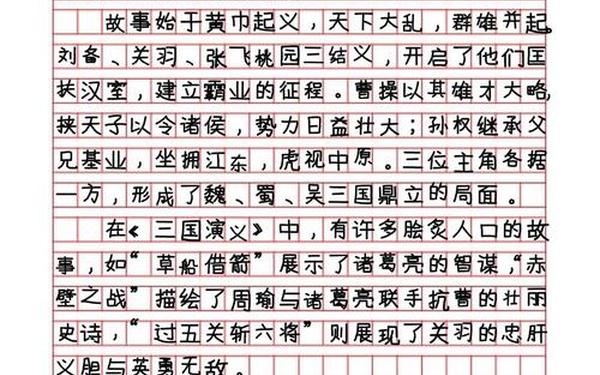 故事始于黄巾起义，天下大乱，群雄并起。
刘备、关羽、张飞桃园三结义，开启了他们匡
扶汉室，建立霸业的征程。曹操以其雄才大略，
挟天子以令诸侯，势力日益壮大；孙权继承父
兄基业，坐拥江东，虎视中原。三位主角各据
一方，形成了魏、蜀、吴三国鼎立的局面。
在《三国演义》中，有许多脍炙人口的故
事，如“草船借箭”展示了诸葛亮的智谋，“赤
壁之战”描绘了周瑜与诸葛亮联手抗曹的壮丽
史诗，“过五关斩六将”则展现了关羽的忠肝
义胆与英勇无敌。